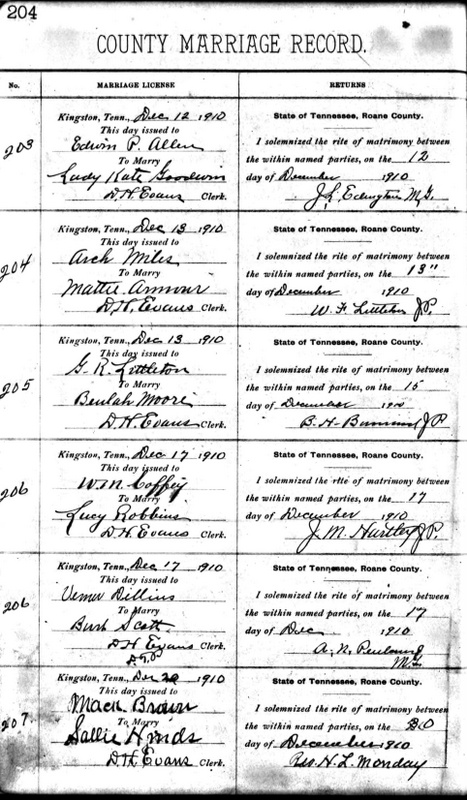 204
COUNTY MARRIAGE RECORD.
No. MARRIAGE LICENSE RETURNS
203
Kingston, Tenn., Dec 12 1910
This day issued to
Edwin P. Allen
To Marry
Lady Kate Goodwin
D.H. Evans Clerk.
State of Tennessee, Roane County.
I solemnized the rite of matrimony between
the within named parties, on the 12
day of December 1910
J.L. Edington M.G.
204
Kingston, Tenn., Dec 13 1910
This day issued to
Arch Miles
To Marry
Mattie Armour
D.H. Evans Clerk.
State of Tennessee, Roane County.
I solemnized the rite of matrimony between
the within named parties, on the 13"
day of December 1910
W. F. Littleton J.P.
205
Kingston, Tenn., Dec 13 1910
This day issued to
G. R. Littleton
To Marry
Beulah Moore
D.H. Evans Clerk.
State of Tennessee, Roane County.
I solemnized the rite of matrimony between
the within named parties, on the 15
day of December 1910
B. H. J.P.
206
Kingston, Tenn., Dec 17 1910
This day issued to
W.M. Coffey
To Marry
Lucy Robbins
D.H. Evans Clerk.
State of Tennessee, Roane County.
I solemnized the rite of matrimony between
the within named parties, on the 17
day of December 1910
J. M. Hartley J.P.
206
Kingston, Tenn., Dec 17 1910
This day issued to
Dillins
To Marry
Scott
D.H. Evans Clerk.
State of Tennessee, Roane County.
I solemnized the rite of matrimony between
the within named parties, on the 17
day of Dec 1910
A. N.
M.G.
207.
Kingston, Tenn., Dec 20 1910
This day issued to
Mack Brown
To Marry
Sallie Hinds
D.H. Evans Clerk.
State of Tennessee, Roane County.
I solemnized the rite of matrimony between
the within named parties, on the 20
day of December 1910
Rev. H. L. Monday